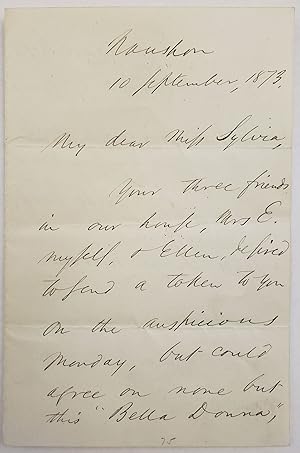 Naushon
10 September, 1873.
My dear Miss Sylvia,
Your three friends
in our house, Mrs E.
myself, & Ellen, desired
to send a token to you
on the auspicious
Monday, but could
agree on none but
this "Bella Donna",
75